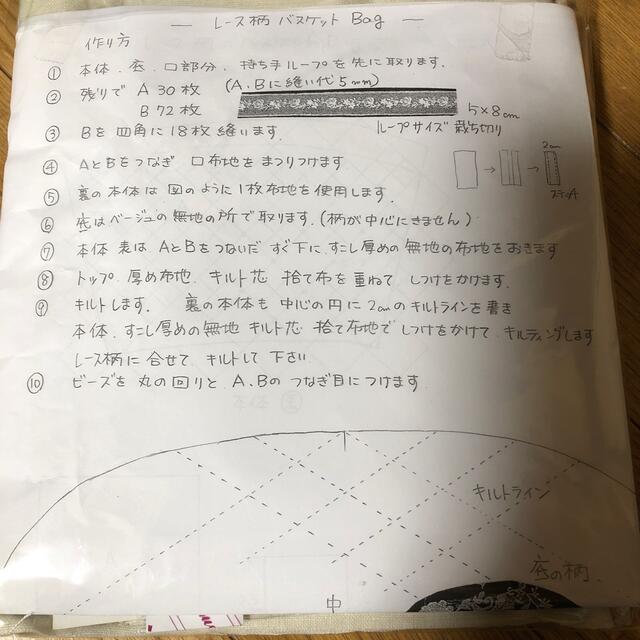 ― レース柄 バスケット Bag ―
作り方
① 本体、底、口部分、持ち手ループを先に取ります。
② 残りで A 30枚 (A、Bに縫い代5mm)
B 72枚
5×8cm
ループサイズ 裁ち切り
③ Bを四角に18枚縫います。
④ AとBをつなぎ 口布地をまつりつけます
2cm
ステッチ
⑤ 裏の本体は図のように1枚布地を使用します。
⑥ 底はベージュの無地の所で取ります。(柄が中心にきません)
⑦ 本体 表は AとBをつないだ すぐ下に、すこし厚めの無地の布地をおきます
⑧ トップ、厚め布地、キルト芯 捨て布を重ねて しつけをかけます。
⑨ キルトします。 裏の本体も 中心の円に2cmのキルトラインを書き
本体、すこし厚めの無地 キルト芯 捨て布地で しつけをかけて、キルティングします
レース柄に合せて、キルトして下さい
⑩ ビーズを丸の回りと、A、Bの つなぎ目につけます。
キルトライン
底の柄、
中